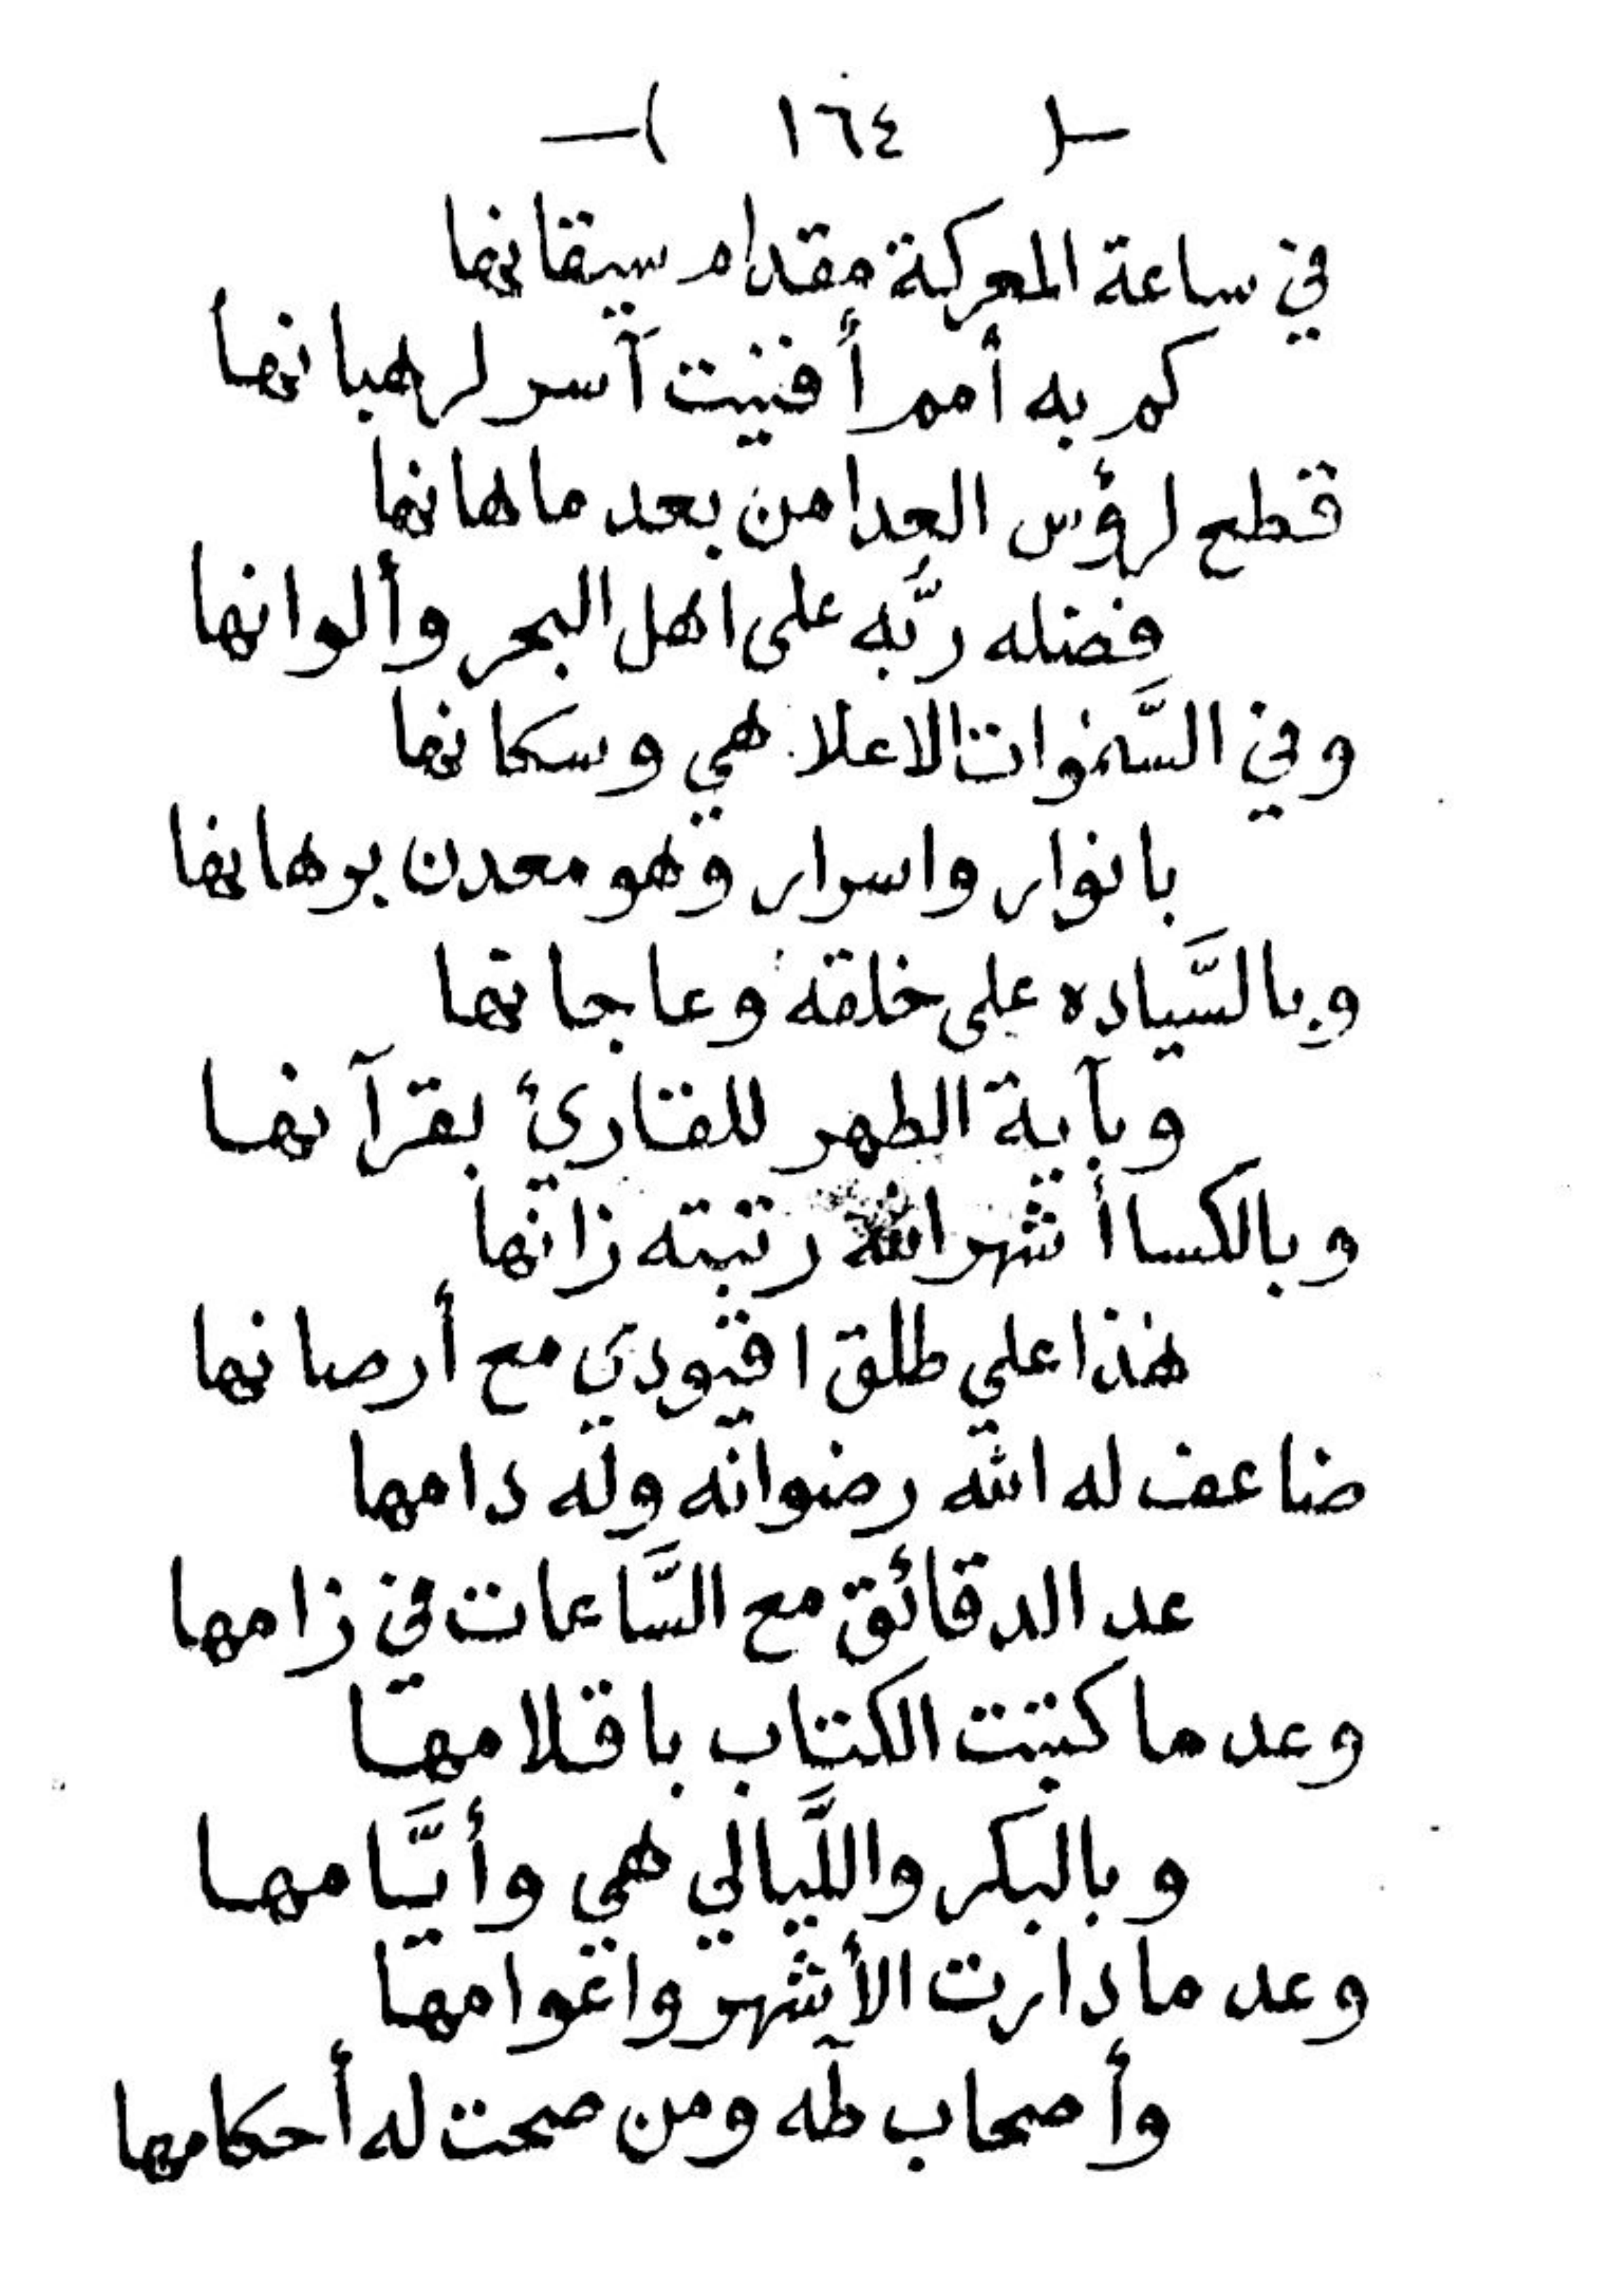 -( ١٦٤ )-
في ساعة المعركة مقدام سيقانها
كم به أمم أفنيت آسر لرهبانها
قطع لرؤس العدا من بعد ما هانها
فضله ربَّه على اهل البحر وألوانها
وفي السَّموات الاعلا هي وسكانها
بانوار واسرار وهو معدن برهانها
وبالسَّياده على خلقه وعاجانها
وبآية الطهر للقارئ بقرآنها
وبالكسا أشهر الله رتبته زانها
هذا علي طلق اقيودي مع أرصانها
ضاعف له الله رضوانه وله دامها
عد الدقائق مع السَّاعات في زامها
وعد ما كتبت الكتاب باقلامها
وبالبكر واللَّيالي هي وأيَّامها
وعد ما دارت الأشهر واعوامها
وأصحاب طه ومن صحت له أحكامها